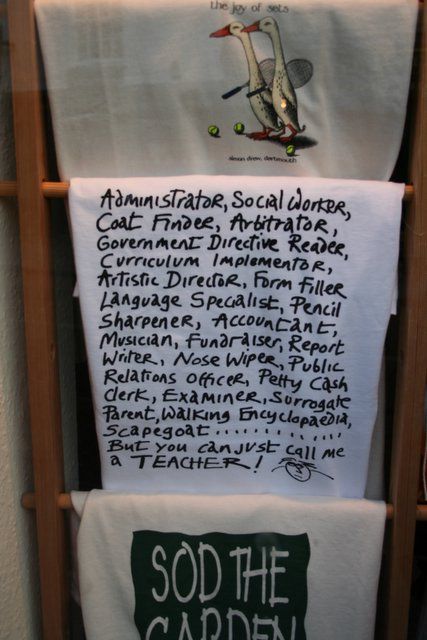 the joy of sets
simon drew, dartmouth
Administrator, Social Worker,
Coat Finder, Arbitrator,
Government Directive Reader,
Curriculum Implementor,
Artistic Director, Form Filler
Language Specialist, Pencil
Sharpener, Accountant,
Musician, Fundraiser, Report
Writer, Nose Wiper, Public
Relations Officer, Petty Cash
Clerk, Examiner, Surrogate
Parent, Walking Encyclopaedia,
Scapegoat..............
But you can just call me
a TEACHER!
SOD THE
GARDEN